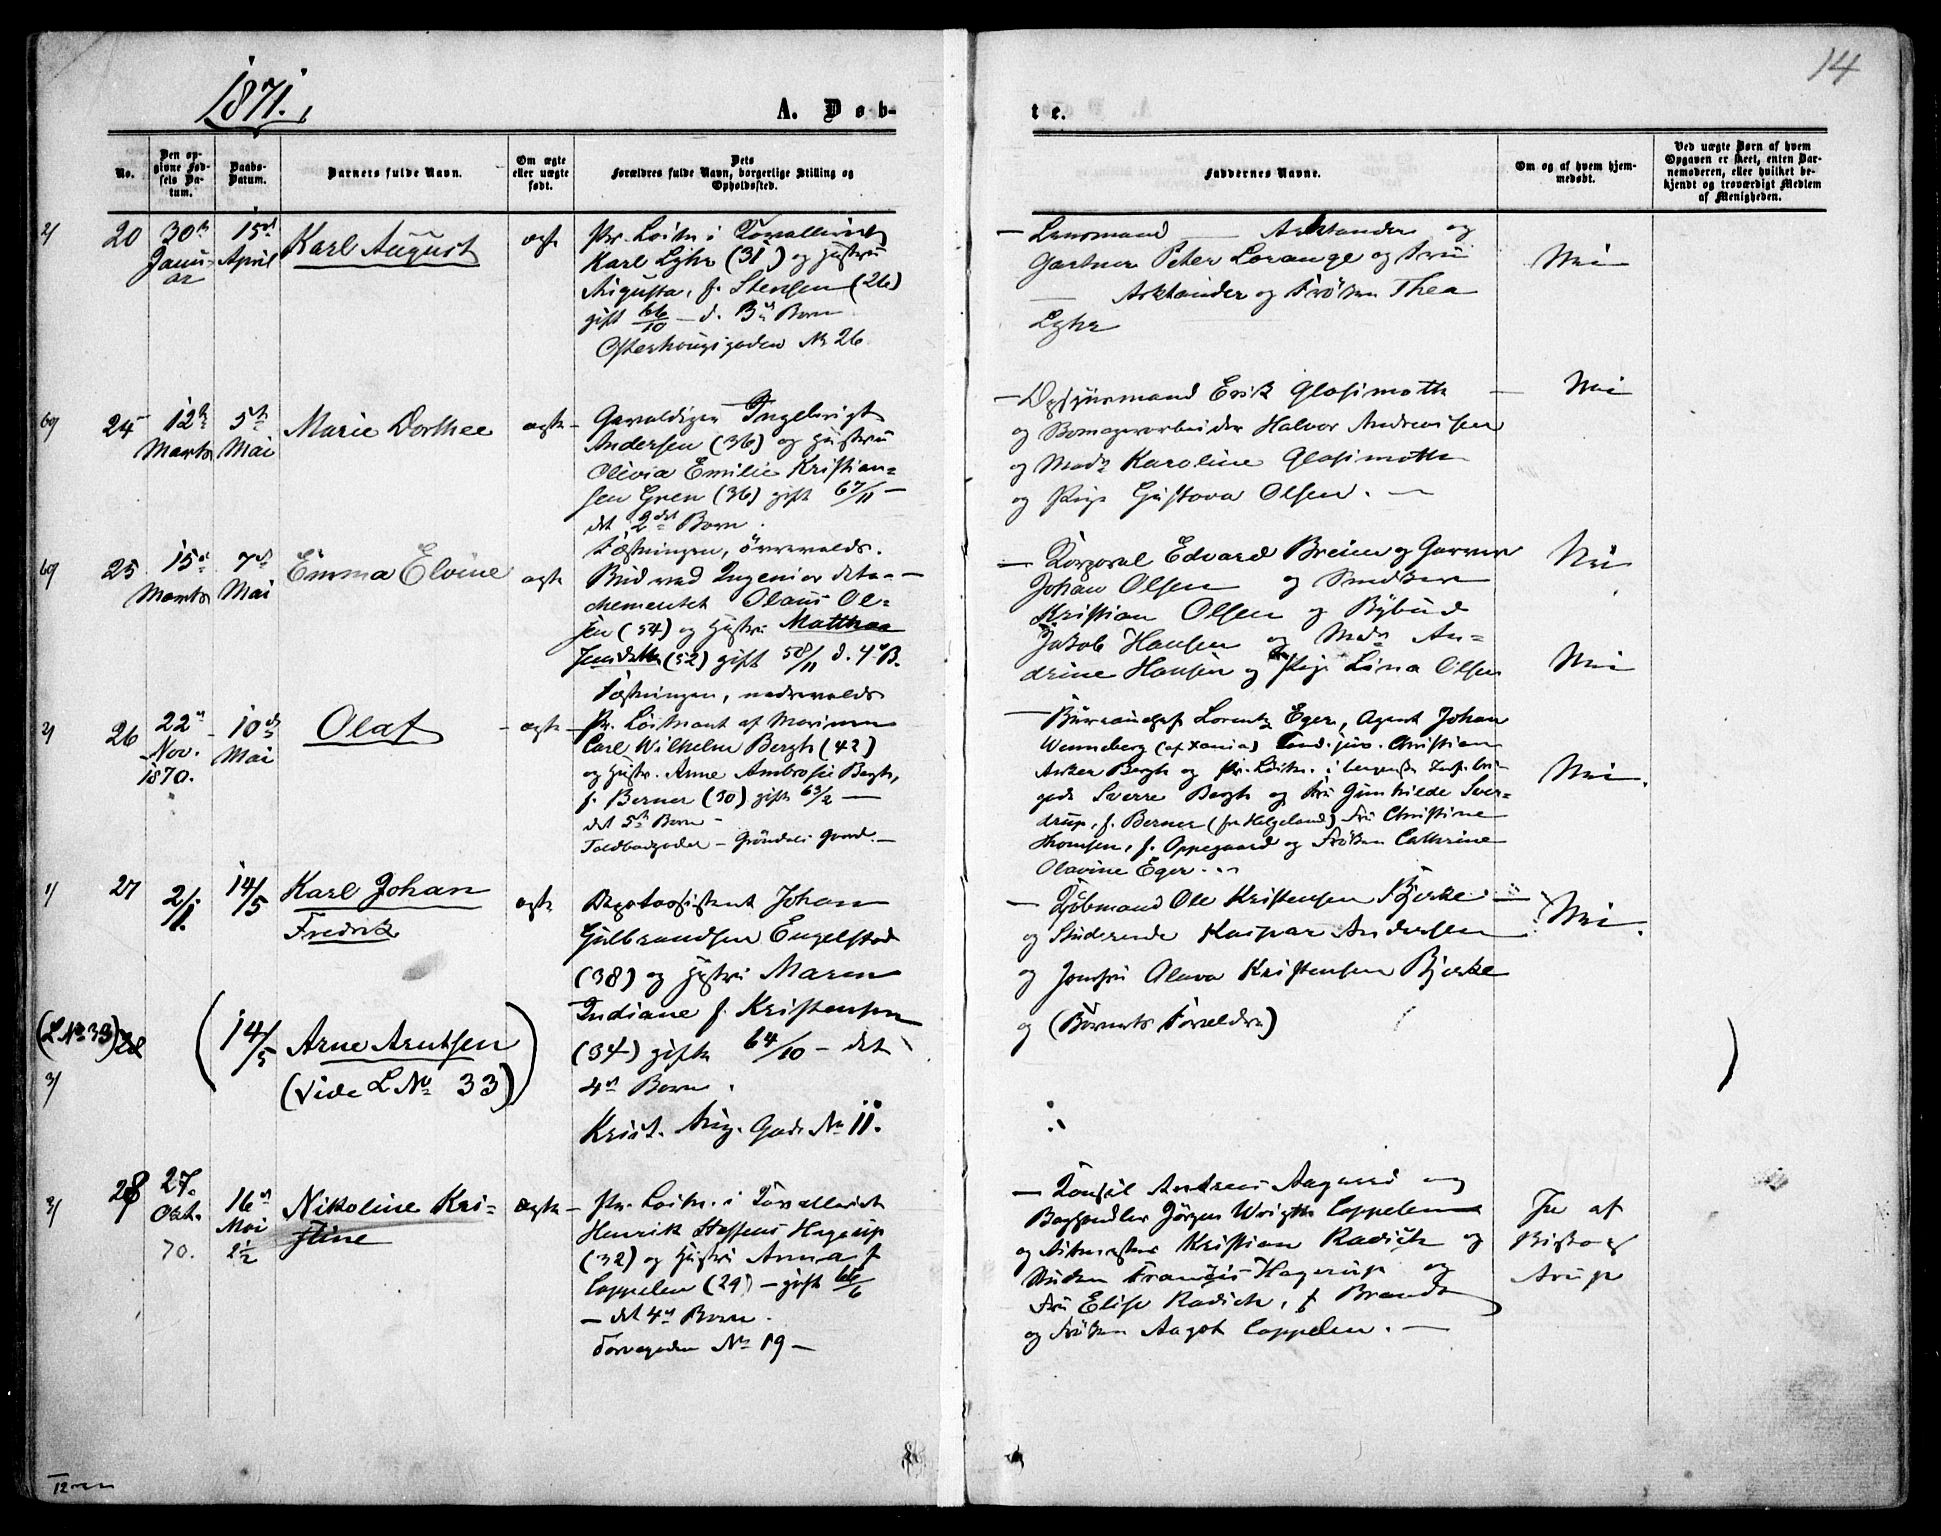 14
1871.
A. Døb-
te.
No.
Den op-
givne Fød-
sels Da-
tum.
Daabs-
Datum.
Barnets fulde Navn.
Om ægte
eller uægte
født.
Dets
Forældres fulde Navn, borgerlige Stilling og
Opholdssted.
Faddernes Navne.
Om og af hvem hjem-
medøbt.
Ved uægte Børn af hvem
Opgaven er skeet, enten Bar-
nemoderen, eller hvilket be-
kjendt og troværdigt Medlem
af Menigheden.
2/
20
30te
Janu-
ar
15de
April
Karl August
ægte
Pr. Løitn. i Kavalleriet
Karl Lyhr (31) og Hustru
Augusta, f. Stensen (26)
gift 66/10 — d. 3die Barn
No 26
— Lensmand — Arktander og
Gartner Peter Lorange og Fru
— Arktander og Frøken Thea
Lyhr
Nei
69
24
12te
Marts
5te
Mai
Marie Dorthee
ægte
Gevaldiger Ingebrigt
Andersen (36) og Hustru
Olivia Emilie Kristian-
sen Gren (36) gift 67/11 —
det 2det Barn.
Fæstningen, övrevolds.
— Opsynsmand Erik Glosimoth
og Bomagerarbeider Halvor Andreassen
og Mad. Karoline Glosimoth
og Pige Gustava Olsen. —
Nei
69
25
15de
Marts
7de
Mai
Emma Elvine
ægte
Bud ved Ingeniør deta-
chementet Olaus Ol-
sen (54) og Hustru Matthea
(52) gift 58/11 d. 4de B.
Fæstningen, nedrevolds
— Korporal Edvard Breien og Garver
Johan Olsen og Snedker
Kristian Olsen og Bybud
Jakob Hansen og Mad. An-
drine Hansen og Pige Lina Olsen
Nei
Nei
2/
26
22de
Nov.
1870.
10de
Mai
Olaf
ægte
Pr. Løitnant af Marinen
Carl Wilhelm Bergh (42)
og Hustr. Anne Ambrosie Bergh,
f. Berner (30) gift 63/2 —
det 5te Barn —
Toldbodgaden — Gröndals Gaard. —
— Bureauchef Lorentz Eger, Agent Johan
Wenneberg (af Xania) Cand. jur. Christian
Anker Bergh og Pr. Løitn. i bergenske Inf. bri-
gade Sverre Bergh og Fru Gunhilde Sver-
drup, f. Berner (fra Helgeland) Fru Christine
Thomsen, f. Oppegaard og Frøken Cathrine
Olavine Eger.
Nei.
1/
27
2/1.
14/5
Karl Johan
Fredrik
ægte
Depotassistent Johan
Gulbrandsen Engelstad
(38) og Hustru Maren
Indiane f. Kristensen
(34) gift 64/10 — det
4de Barn.
Krist. Aug. Gade No 11.
— Kjøbmand Ole Kristensen Bjerke
og Studerende Kaspar Andersen
og Jomfru Olava Kristensen Bjerke
og (Barnets Forældre)
Nei.
(L No 33)
3/
(14/5 Arne Arntsen
(vide L No 33))
3/
28
27.
Okt.
70.
16de
Mai
2 1/2
Nikoline Kri-
stine
ægte
Pr. Løitn. i Kavalleriet
Henrik Steffens Hagerup
(32) og Hustru Anna f.
Coppelen (29) — gift 66/6
— det 4de Barn.
Torvegaden No 19 —
— Konsul Andreas Aagaard og
Boghandler Jörgen Wright Cappelen
og Ritmester Kristian Radich og
Student Francis Hagerup og
Fru Elise Radich, f. Brandt
og Frøken Aagot Cappelen. —
Ja af
Biskop
Arup